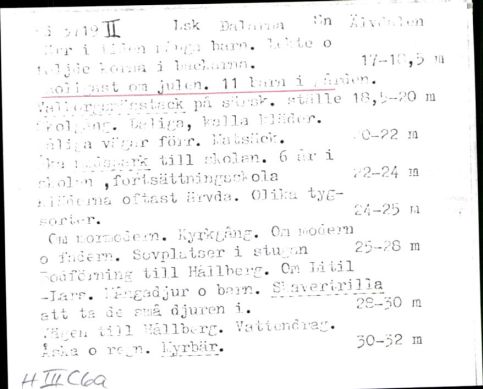 5719 II Lsk Dalarna Sn Älvdalen
Här i tiden många barn. Lekte o
följde korna i backarna. 17-18,5 m
Roligast om julen. 11 barn i gården.
på särsk. ställe 18,5-20 m
Skolgång. Dåliga, kalla kläder.
Dåliga vägar förr. Matsäck. 20-22 m
till skolan. 6 år i
skolan ,fortsättningsskola 22-24 m
Kläderna oftast ärvda. Olika tyg-
sorter. 24-25 m
Om mormodern. Kyrkgång. Om modern
o fadern. Sovplatser i stugan 25-28 m
till Hållberg. Om Litil
-Lars. o barn. Skavertrilla
att ta de små djuren i. 28-30 m
Vägen till Hållberg. Vattendrag.
Åska o regn. Myrbär. 30-32 m
H III C6a